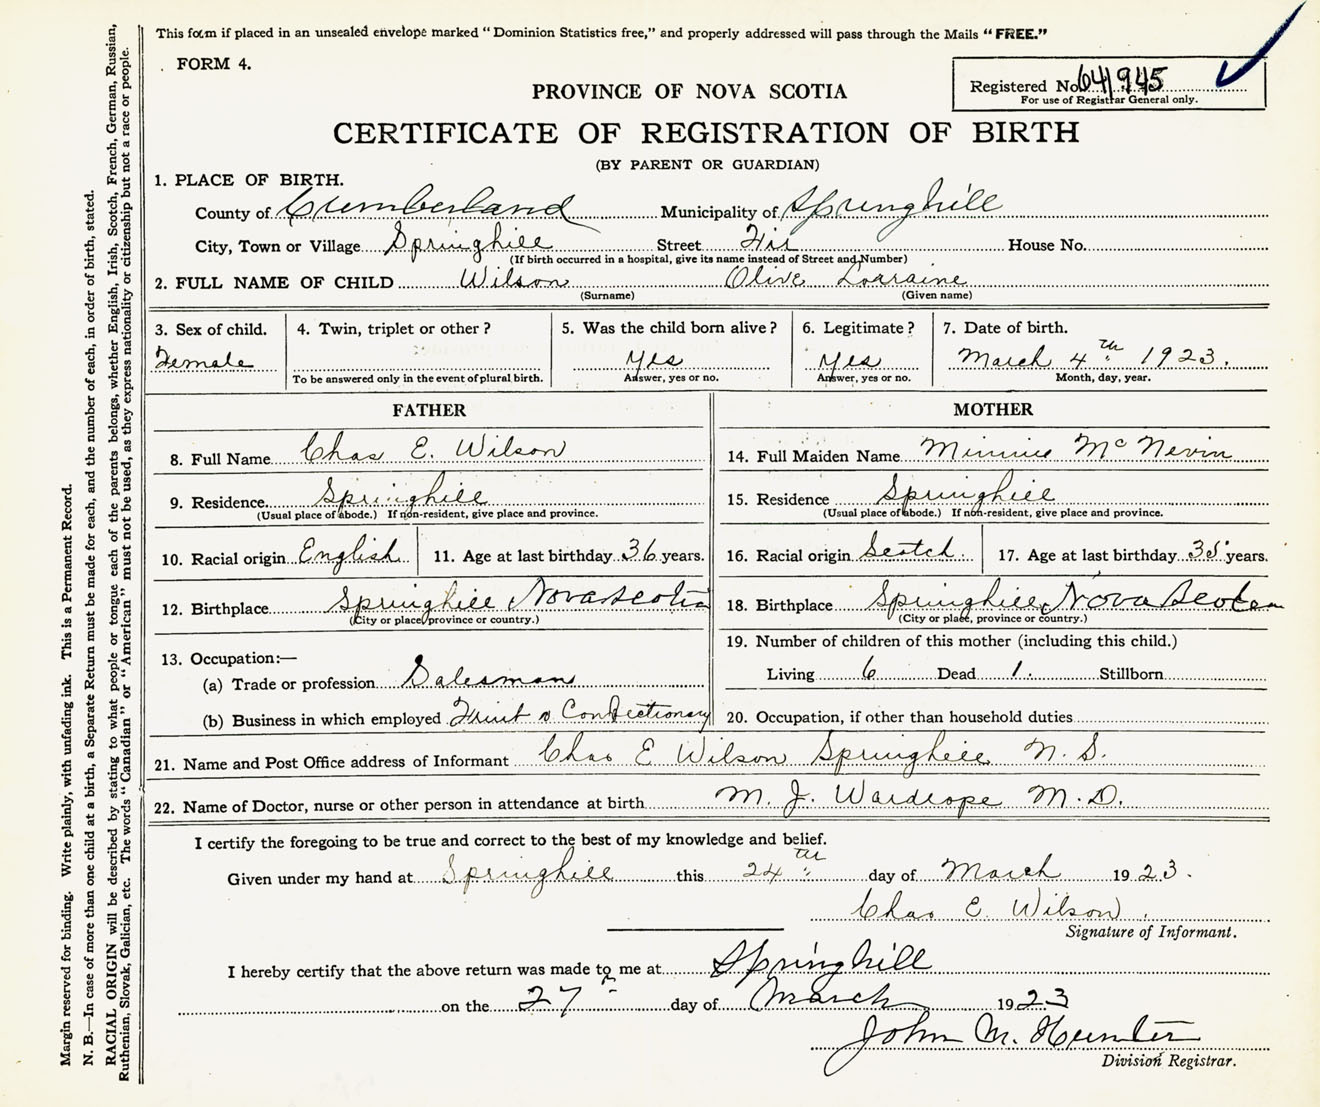 This form if placed in an unsealed envelope marked "Dominion Statistics free," and properly addressed will pass through the Mails "FREE."
FORM 4.
Registered No. 641945
For use of Registrar General only.
PROVINCE OF NOVA SCOTIA
CERTIFICATE OF REGISTRATION OF BIRTH
(BY PARENT OR GUARDIAN)
1. PLACE OF BIRTH.
County of Cumberland Municipality of Springhill
City, Town or Village Springhill Street House No.
(If birth occurred in a hospital, give its name instead of Street and Number)
2. FULL NAME OF CHILD Wilson Olive Lorraine
(Surname) (Given name)
3. Sex of child. 4. Twin, triplet or other? 5. Was the child born alive? 6. Legitimate? 7. Date of birth.
Female Yes Yes March 4th 1923.
To be answered only in the event of plural birth. Answer, yes or no. Answer, yes or no. Month, day, year.
FATHER
8. Full Name Chas E. Wilson
9. Residence Springhill
(Usual place of abode.) If non-resident, give place and province.
10. Racial origin English 11. Age at last birthday 36 years.
12. Birthplace Springhill Nova Scotia
(City or place, province or country.)
13. Occupation:—
(a) Trade or profession Salesman
(b) Business in which employed Fruit & Confectionary
MOTHER
14. Full Maiden Name Minnie McNevin
15. Residence Springhill
(Usual place of abode.) If non-resident, give place and province.
16. Racial origin Scotch. 17. Age at last birthday 35 years.
18. Birthplace Springhill, Nova Scotia
(City or place, province or country.)
19. Number of children of this mother (including this child.)
Living 6 Dead 1. Stillborn
20. Occupation, if other than household duties
21. Name and Post Office address of Informant Chas E Wilson Springhill N. S.
22. Name of Doctor, nurse or other person in attendance at birth M. J. Wardrope M.D.
I certify the foregoing to be true and correct to the best of my knowledge and belief.
Given under my hand at Springhill this 24th day of March 1923.
Chas E. Wilson.
Signature of Informant.
I hereby certify that the above return was made to me at Springhill
on the 27th day of March 1923
John M. Hunter
Division Registrar.
Margin reserved for binding. Write plainly, with unfading ink. This is a Permanent Record.
N. B.—In case of more than one child at a birth, a Separate Return must be made for each, and the number of each, in order of birth, stated.
RACIAL ORIGIN will be described by stating to what people or tongue each of the parents belongs, whether English, Irish, Scotch, French, German, Russian,
Ruthenian, Slovak, Galician, etc. The words "Canadian" or "American" must not be used, as they express nationality or citizenship but not a race or people.